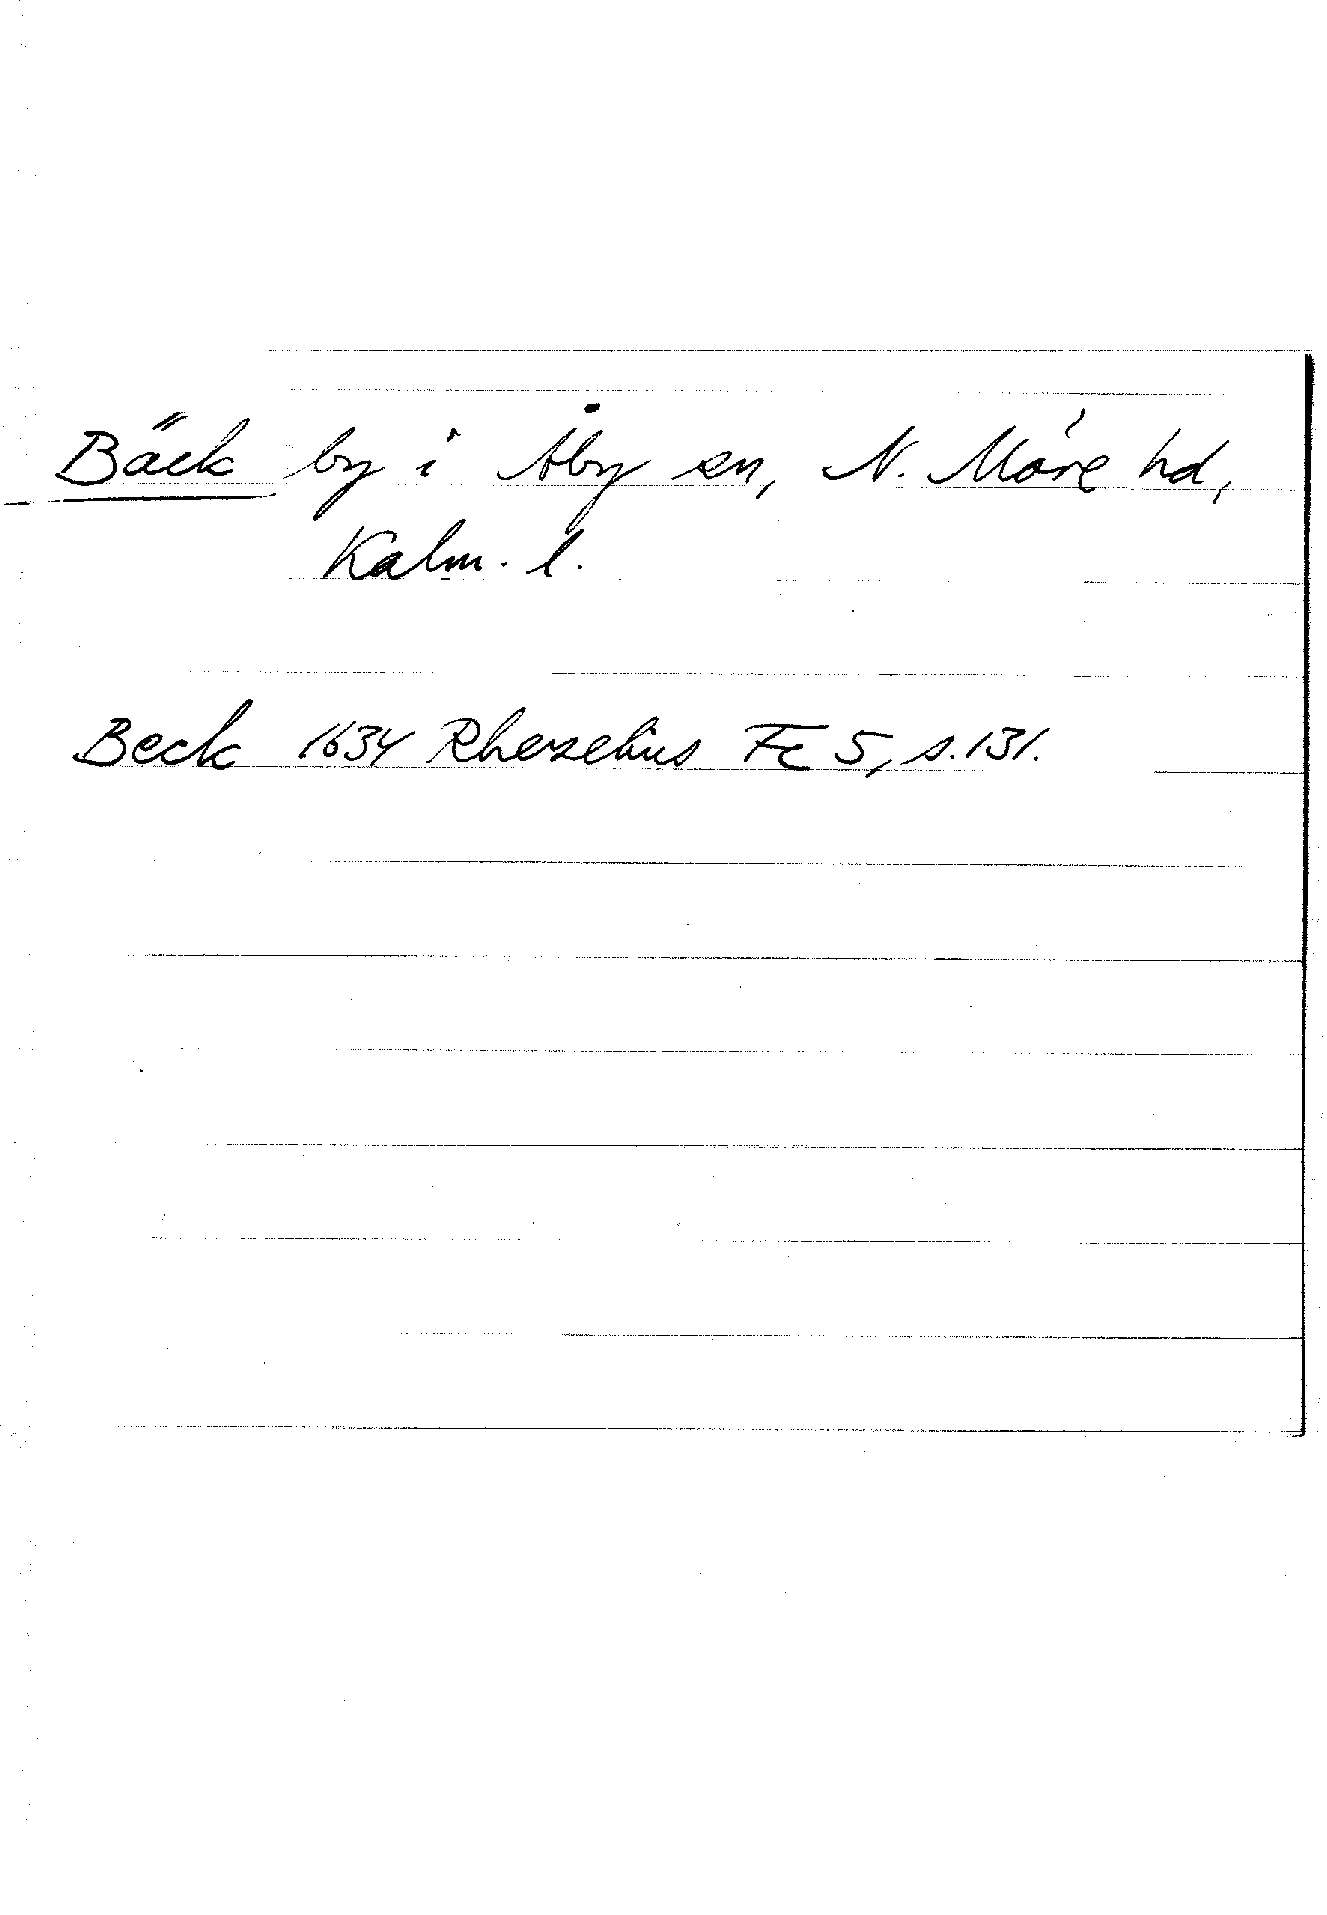 Bäck by i Åby sn, N. Möre hd,
Kalm. l.
Beck 1634 Rhezelius Fc 5, s. 131.